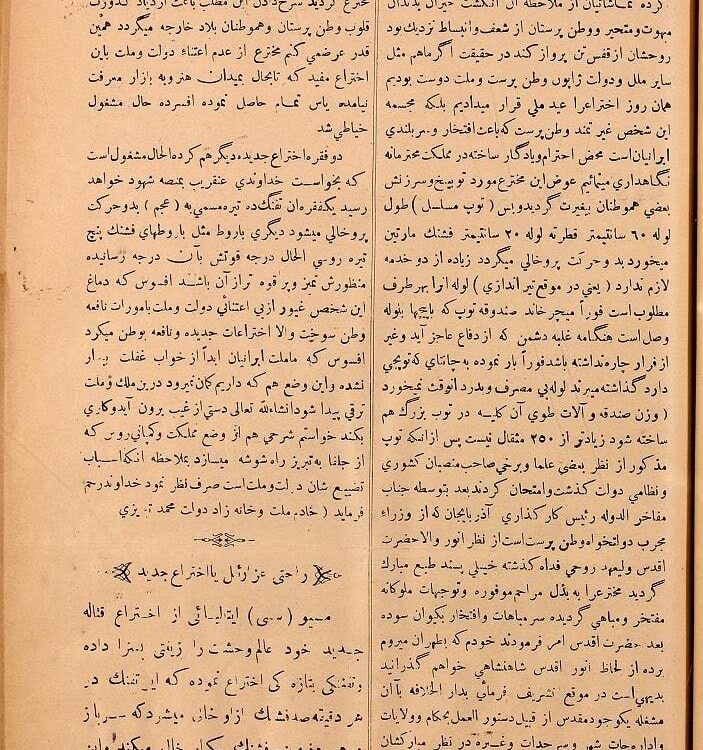 کرده تماشائیان از ملاحظه آن انگشت حیران بدندان
مبهوت ومتحیر ووطن پرستان از شعف وانبساط نزدیك بود
روحشان از قفس تن پرواز کند در حقیقت اگر ماهم مثل
سایر ملل ودولت ژاپون وطن پرست وملت دوست بودیم
همان روز اختراعرا عید ملی قرار میدادیم بلکه مجسمه
این شخص غیرتمند وطن پرست که باعث افتخار وسربلندی
ایرانیان است محض احترام ویادگار ساخته در مملکت محترمانه
نگاهداری مینمائیم عوض این مخترع مورد توبیخ وسرزنش
بعضی هموطنان بیغیرت گردید وبس ( توپ مسلسل ) طول
لوله ٦٠ سانتیمتر قطر ته لوله ٢٠ سانتیمتر فشنك مارتین
میخورد بد وحرکت پر وخالی میگردد زیاده از دو خدمه
لازم ندارد ( یعنی در موقع تیر اندازی ) لوله اورا بهر طرف
مطلوب است فوراً میچرخاند صندوقه توپ که باپیچها بلوله
وصل است هنگامه غلبه دشمن که از دفاع عاجز آید وغیر
از فرار چاره نداشته باشد فوراً باز نموده به چانتای که توپچی
دارد گذاشته میبرند لوله بی مصرف وبدرد آنوقت نمیخورد
( وزن صندقه وآلات طوی آن کلیه در توپ بزرگ هم
ساخته شود زیادتر از ٢٥٠ مثقال نیست پس از انیکه توپ
مذکور از نظر بعضی علما وبرخی صاحب منصبان کشوری
ونظامی دولت گذشت وامتحان کردند بعد بتوسطه جناب
مفاخر الدوله رئیس کارگذاری آذربایجان که از وزراء
مجرب دولتخواه وطن پرست است از نظر انور والاحضرت
اقدس ولیعهد روحی فداه گذشته خیلی پسند طبع مبارك
گردید مخترعرا به بذل مراحم موفوره وتوجهات ملوکانه
مفتخر ومباهی گردیده سر مباهات وافتخار بکیوان سوده
بعد حضرت اقدس امر فرمودند خودم که بطهران میروم
برده از لحاظ انور اقدس شاهنشاهی خواهم گذرانید
بدیهی است در موقع تشریف فرمائی بدار الخلافه باآن
مشغله یکوجود مقدس از قبیل دستور العمل بحکام وولایات
وادارجات شهر وسرحدات وغیره در نظر مبارکشان
قلوب وطن پرستان وهموطنان بلاد خارجه میگردد همین
قدر عرضه می کنم مخترع از عدم اعتناء دولت وملت باین
اختراع مفید که تابحال بمیدان هنر وبه بازار معرفت
نیامده یاس تمام حاصل نموده افسرده حال مشغول
خیاطی شد
دو فقره اختراع جدیده دیگر هم کرده الحال مشغول است
که بخواست خداوندی عنقریب بمنصه شهود خواهد
رسید یکفقره ان تفنك ده تیره مسمی به ( عجم ) بدو حرکت
پر وخالی میشود دیگری باروط مثل باروطهای فشنك پنج
تیره روسی الحال درجه قوتش بآن درجه رسانیده
منظورش تمیز وپر قوه تر از آن باشد افسوس که دماغ
این شخص غیور از بی اعتنائی دولت وملت بامورات نافعه
وطن سوخت والا اختراعات جدیده ونافعه بوطن میکرد
افسوس که ماملت ایرانیان ابداً از خواب غفلت بیدار
نشده واین وضع هم که داریم گمان نمیرود در بن ملك وملت
ترقی پیدا شود انشاءلله تعالی دستی از غیب برون آید وکاری
بکند خواستم شرحی هم از وضع مملکت وکمپانی روس که
از جلفا به تبریز راه شوشه میسازد بملاحظه آنکه اسباب
تضییع شان دولت وملت است صرف نظر نمود خداوند رحم
فرماید ( خادم ملت وخانه زاد دولت محمد تبریزی
راحتی عزرائل یا اختراع جدید
مسیو ( سی ) ایتالیائی از اختراع قتاله
جدید خود عالم وحشت را زینتی بسزا داده
وتفنگی بتازه کی اختراع نموده که این تفنك در
هر دقیقه صد فشنك از او خالی میشرد که سرباز